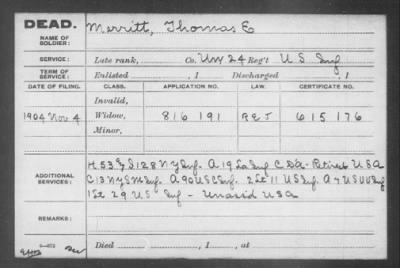 DEAD.
NAME OF SOLDIER:
Merritt, Thomas E
SERVICE:
Late rank, Co. Un 24 Reg't U S Inf
TERM OF SERVICE:
Enlisted , 1 Discharged , 1
DATE OF FILING. CLASS. APPLICATION NO. LAW. CERTIFICATE NO.
Invalid,
1904 Nov 4 Widow, 816 191 615 176
Minor,
ADDITIONAL SERVICES:
H 53 & D 128 N Y Inf. A 19 Inf Retired U S A
C 13 N Y Inf. A 90 U S C Inf. 2 Lt 11 U S Inf. A
1 Lt 29 U S Inf - Unassd U S A
REMARKS:
Died , 1 , at